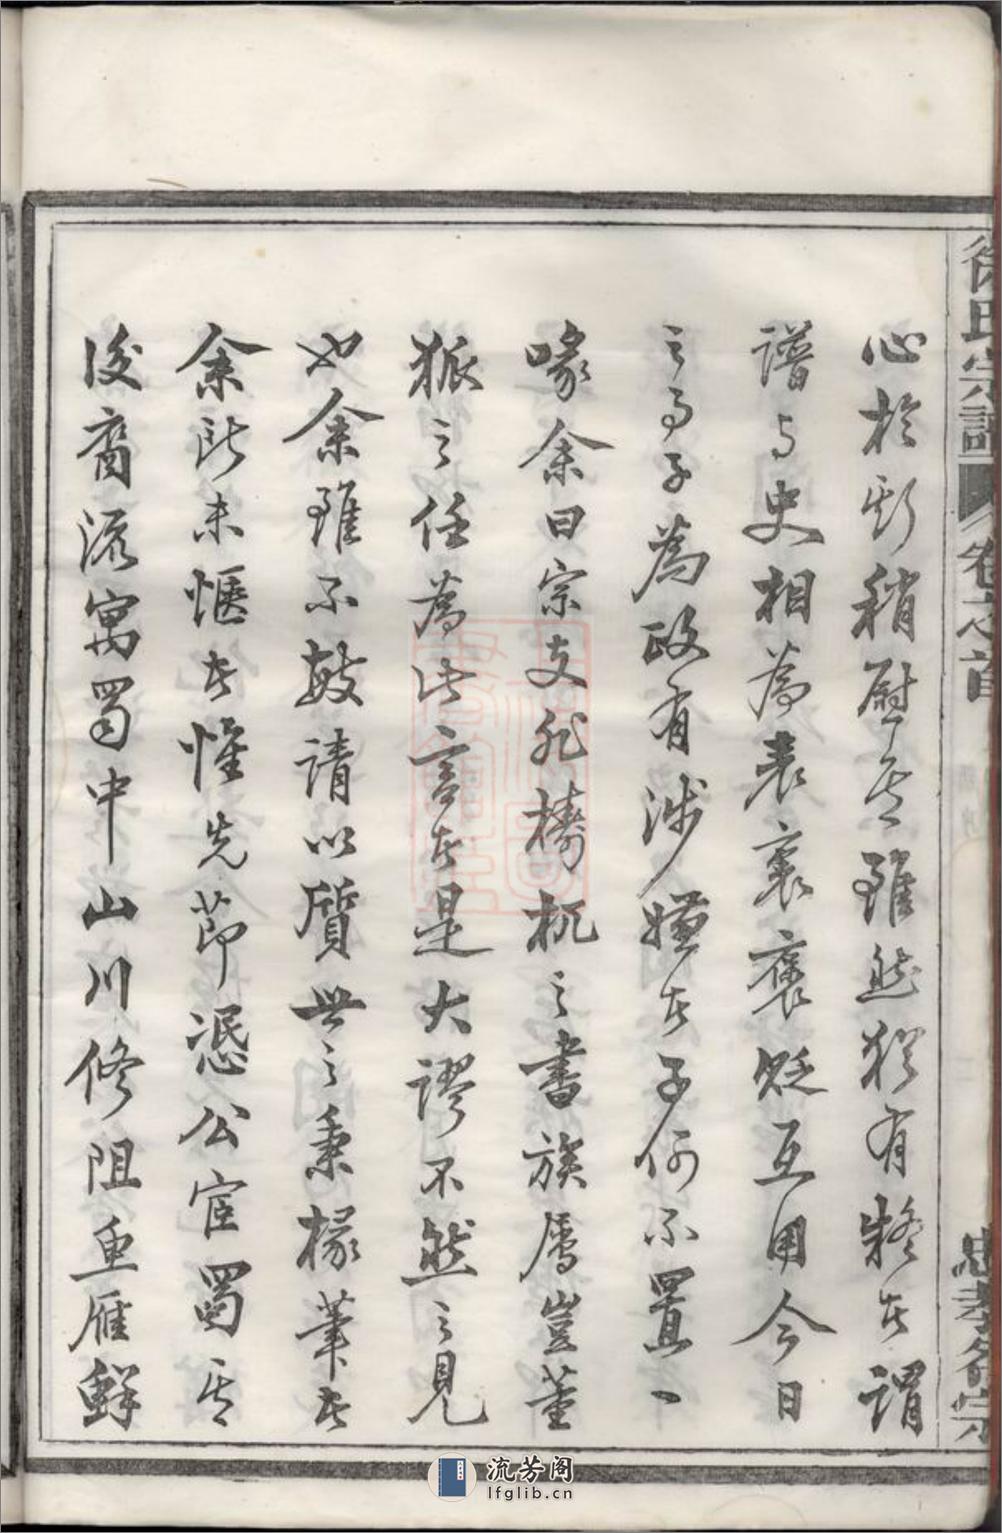 徐氏宗譜 卷之首 忠孝名宗
心於斯稍慰矣雖然猶有疑者謂
譜与史相為表裏褒貶互用今日
之事子為政有涉嫌者子何不置一
喙余曰宗支非檮杌之書族属豈董
狐之任為此言者是大謬不然之見
也余雖不敏請以質世之秉椽筆者
余所未愜者惟先節愍公宦蜀其
後裔流寓蜀中山川修阻魚雁鮮
流芳阁
lfglib.cn